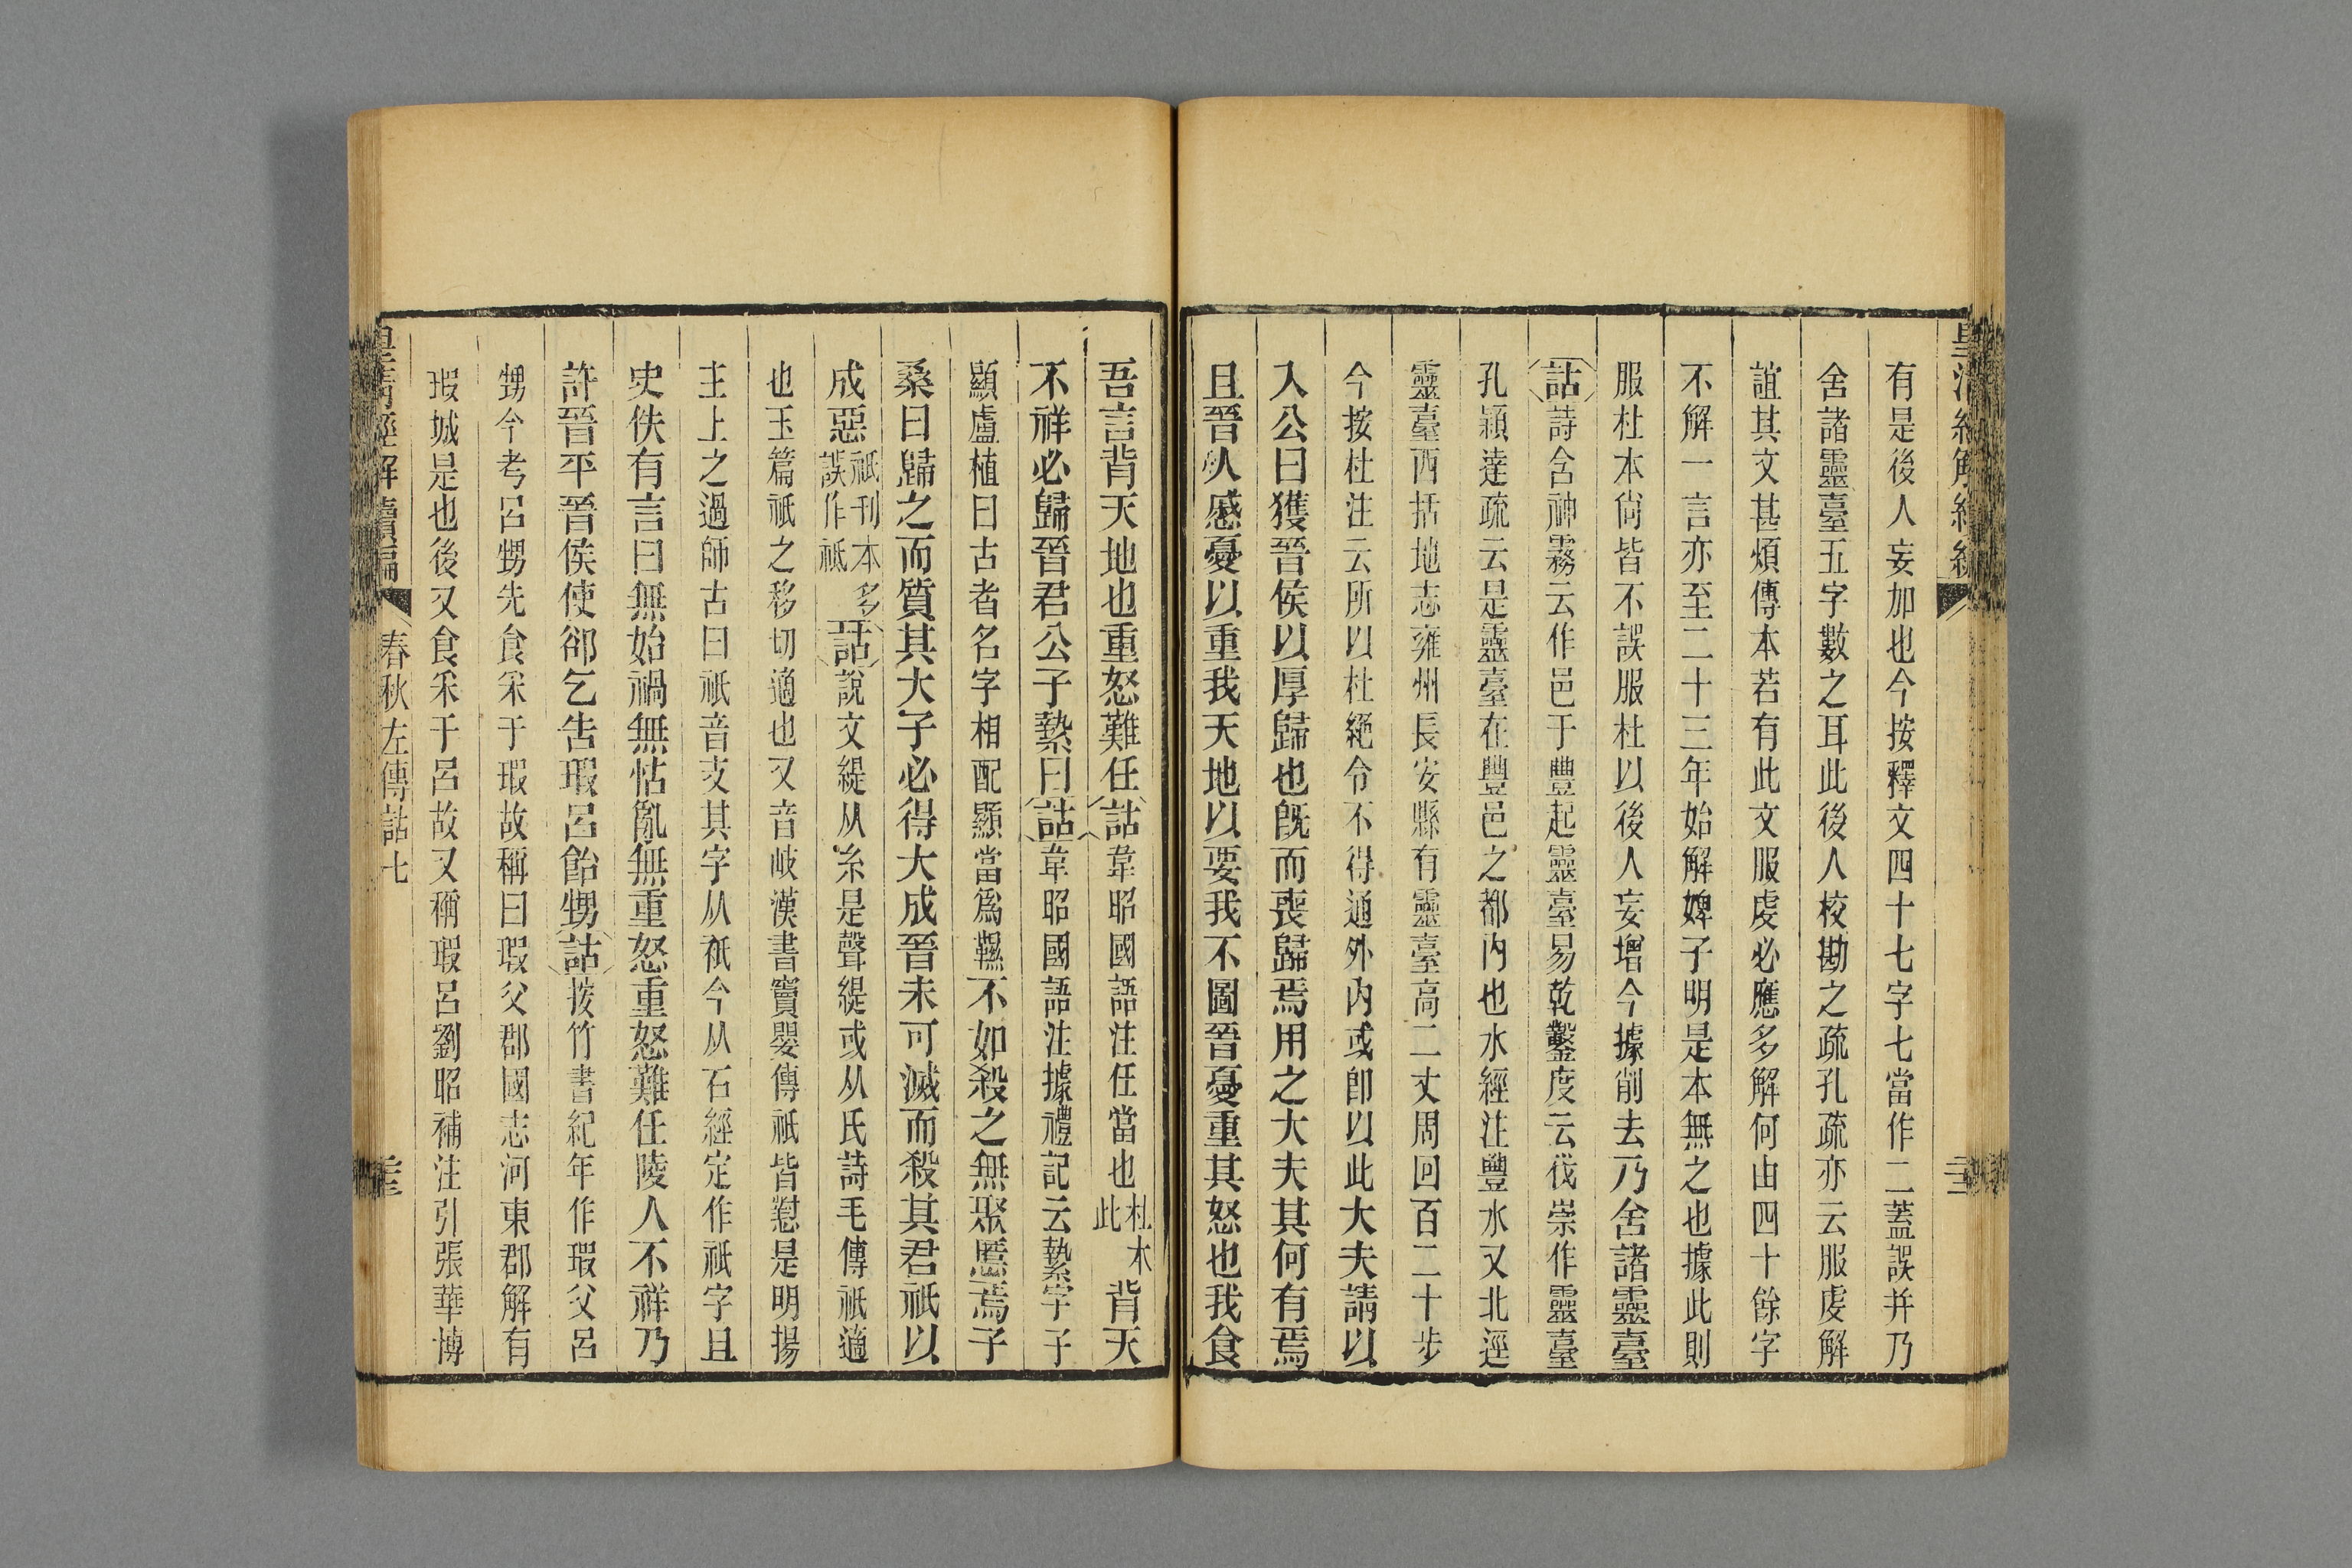 有是後人妄加也今按釋文四十七字七當作二蓋誤并乃
舍諸靈臺五字數之耳此後人校勘之疏孔疏亦云服虔解
誼其文甚煩傳本若有此文服虔必應多解何由四十餘字
不解一言亦至二十三年始解婢子明是本無之也據此則
服杜本尙皆不誤服杜以後人妄增今據削去乃舍諸靈臺
詁詩含神霧云作邑于豐起靈臺易乾鑿度云伐崇作靈臺
孔穎達疏云是靈臺在豐邑之都內也水經注豐水又北逕
靈臺西括地志雍州長安縣有靈臺高二丈周回百二十步
今按杜注云所以杜絕令不得通外內或卽以此大夫請以
入公曰獲晉侯以厚歸也旣而喪歸焉用之大夫其何有焉
且晉人慼憂以重我天地以要我不圖晉憂重其怒也我食
吾言背天地也重怒難任詁韋昭國語注任當也杜本此背天
不祥必歸晉君公子縶曰詁韋昭國語注據禮記云縶字子
顯盧植曰古者名字相配顯當爲韅不如殺之無聚慝焉子
桑曰歸之而質其大子必得大成晉未可滅而殺其君祇以
成惡祇刊本多誤作祗詁說文緹从糸是聲緹或从氏詩毛傳祇適
也玉篇祇之移切適也又音岐漢書竇嬰傳祇皆懟是明揚
主上之過師古曰祇音支其字从衹今从石經定作祇字且
史佚有言曰無始禍無怙亂無重怒重怒難任陵人不祥乃
許晉平晉侯使郤乞告瑕呂飴甥詁按竹書紀年作瑕父呂
甥今考呂甥先食采于瑕故稱曰瑕父郡國志河東郡解有
瑕城是也後又食采于呂故又稱瑕呂劉昭補注引張華博
春秋左傳詁七